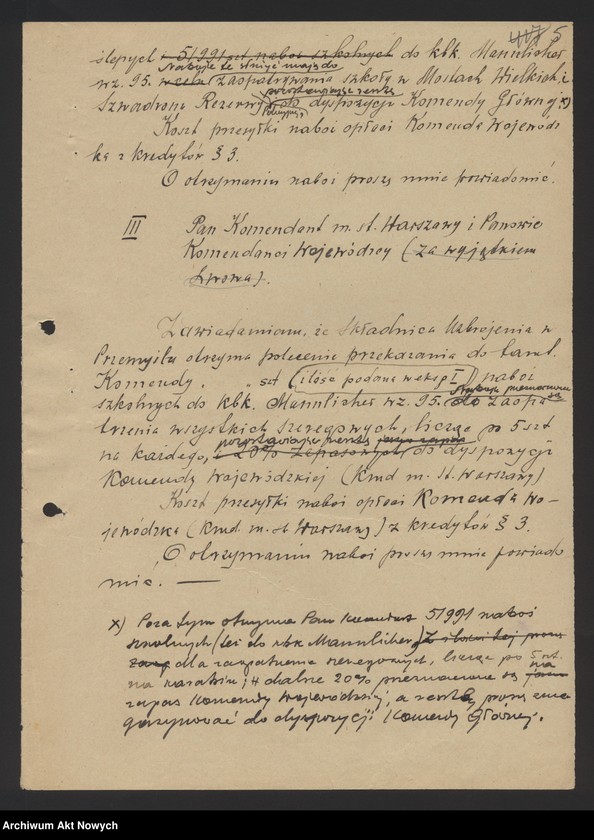 5
ślepych i 51991 szt naboi szkolnych do kbk. Mannlicher
Naboje te służyć mają do
wz. 95. w celu zaopatrywania szkoły w Mostach Wielkich i
pozostającą resztę
Szwadronu Rezerwy do dyspozycji Komendy Głównej x)
Koszt przesyłki naboi opłaci Komenda Wojewódz
ka z kredytów § 3.
O otrzymaniu naboi proszę mnie powiadomić.
III Pan Komendant m. st. Warszawy i Panowie
Komendanci Wojewódzcy (za wyjątkiem
Lwowa).
Zawiadamiam, że Składnica Uzbrojenia w
Przemyślu otrzyma polecenie przekazania do tamt.
Komendy . . szt (ilość podana w eksp I) naboi
Naboje przeznaczone są
szkolnych do kbk. Mannlicher wz. 95. do zaopa
trzenia wszystkich szeregowych, licząc po 5 szt
pozostającą resztę
na każdego, i 20% zapasowych do dyspozycji
Komendy Wojewódzkiej (Kmd m. st. Warszawy)
Koszt przesyłki naboi opłaci Komenda Wo-
jewódzka (kmd. m. st Warszawy) z kredytów § 3.
O otrzymaniu naboi proszę mnie powiado
mić. —
x) Poza tym otrzyma Pan Komendant 51991 naboi
szkolnych (też do kbk Mannlicher) z ilości tej proszę
dla zaopatrzenia szeregowych, licząc po 5 szt.
na karabin; dalsze 20% przeznaczone są na
zapas Komendy Wojewódzkiej, a resztę proszę zma
gazynować do dyspozycji Komendy Głównej.
Archiwum Akt Nowych